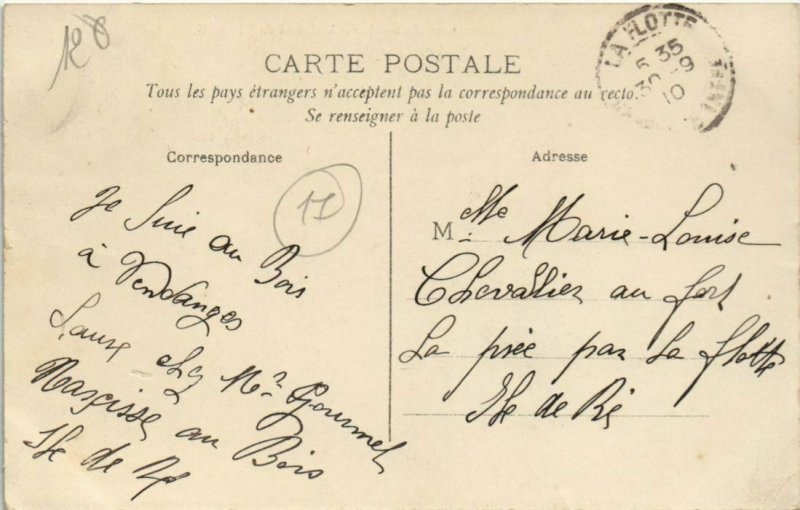 128
CARTE POSTALE
Tous les pays étrangers n'acceptent pas la correspondance au recto.
Se renseigner à la poste
LA FLOTTE
5 35
30 9
10
Correspondance
17
Je Suie au Bois
à Vendanges
chez Mr Gournel
Narcisse au Bois
Ile de Ré
Adresse
Mlle Marie-Louise
Chevallier au fort
La prée par La flotte
Ile de Ré